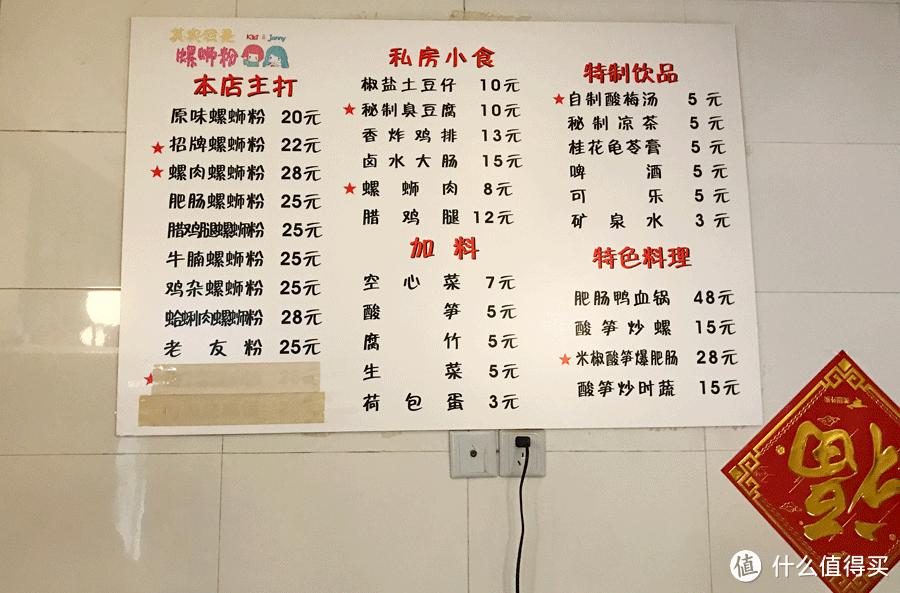 其实就是
Kiki & Jenny
螺蛳粉
本店主打
原味螺蛳粉 20元
★招牌螺蛳粉 22元
★螺肉螺蛳粉 28元
肥肠螺蛳粉 25元
腊鸡腿螺蛳粉 25元
牛腩螺蛳粉 25元
鸡杂螺蛳粉 25元
蛤蜊肉螺蛳粉 28元
老友粉 25元
私房小食
椒盐土豆仔 10元
★秘制臭豆腐 10元
香炸鸡排 13元
卤水大肠 15元
★螺蛳肉 8元
腊鸡腿 12元
加料
空心菜 7元
酸笋 5元
腐竹 5元
生菜 5元
荷包蛋 3元
特制饮品
★自制酸梅汤 5元
秘制凉茶 5元
桂花龟苓膏 5元
啤酒 5元
可乐 5元
矿泉水 3元
特色料理
肥肠鸭血锅 48元
酸笋炒螺 15元
★米椒酸笋爆肥肠 28元
酸笋炒时蔬 15元
福
值 什么值得买